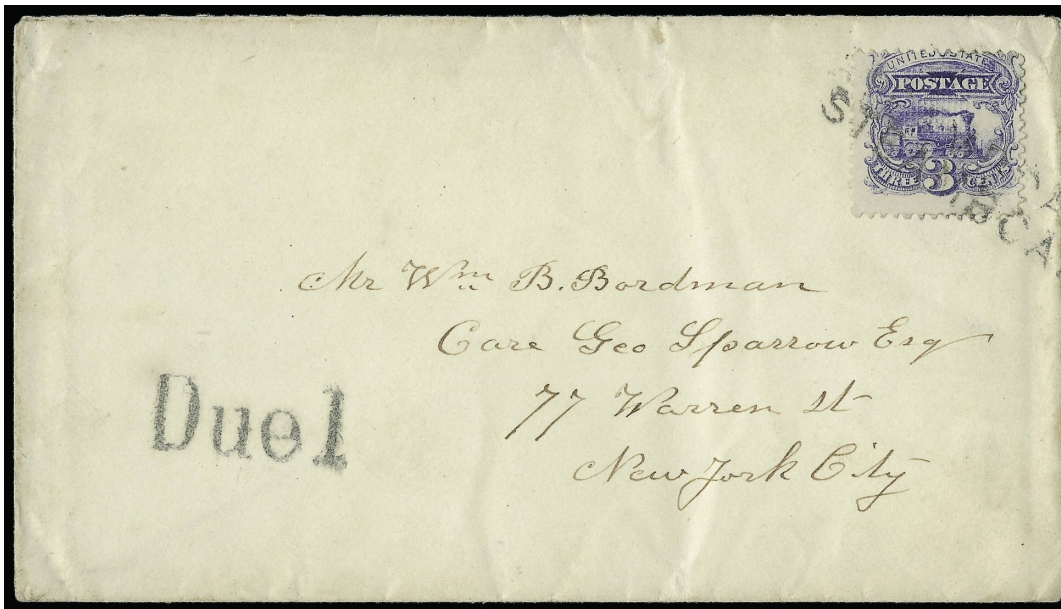 UNITED STATES
POSTAGE
THREE 3 CENTS
Mr Wm B. Bordman
Care Geo Sparrow Esq
77 Warren st
New York City
Due 1